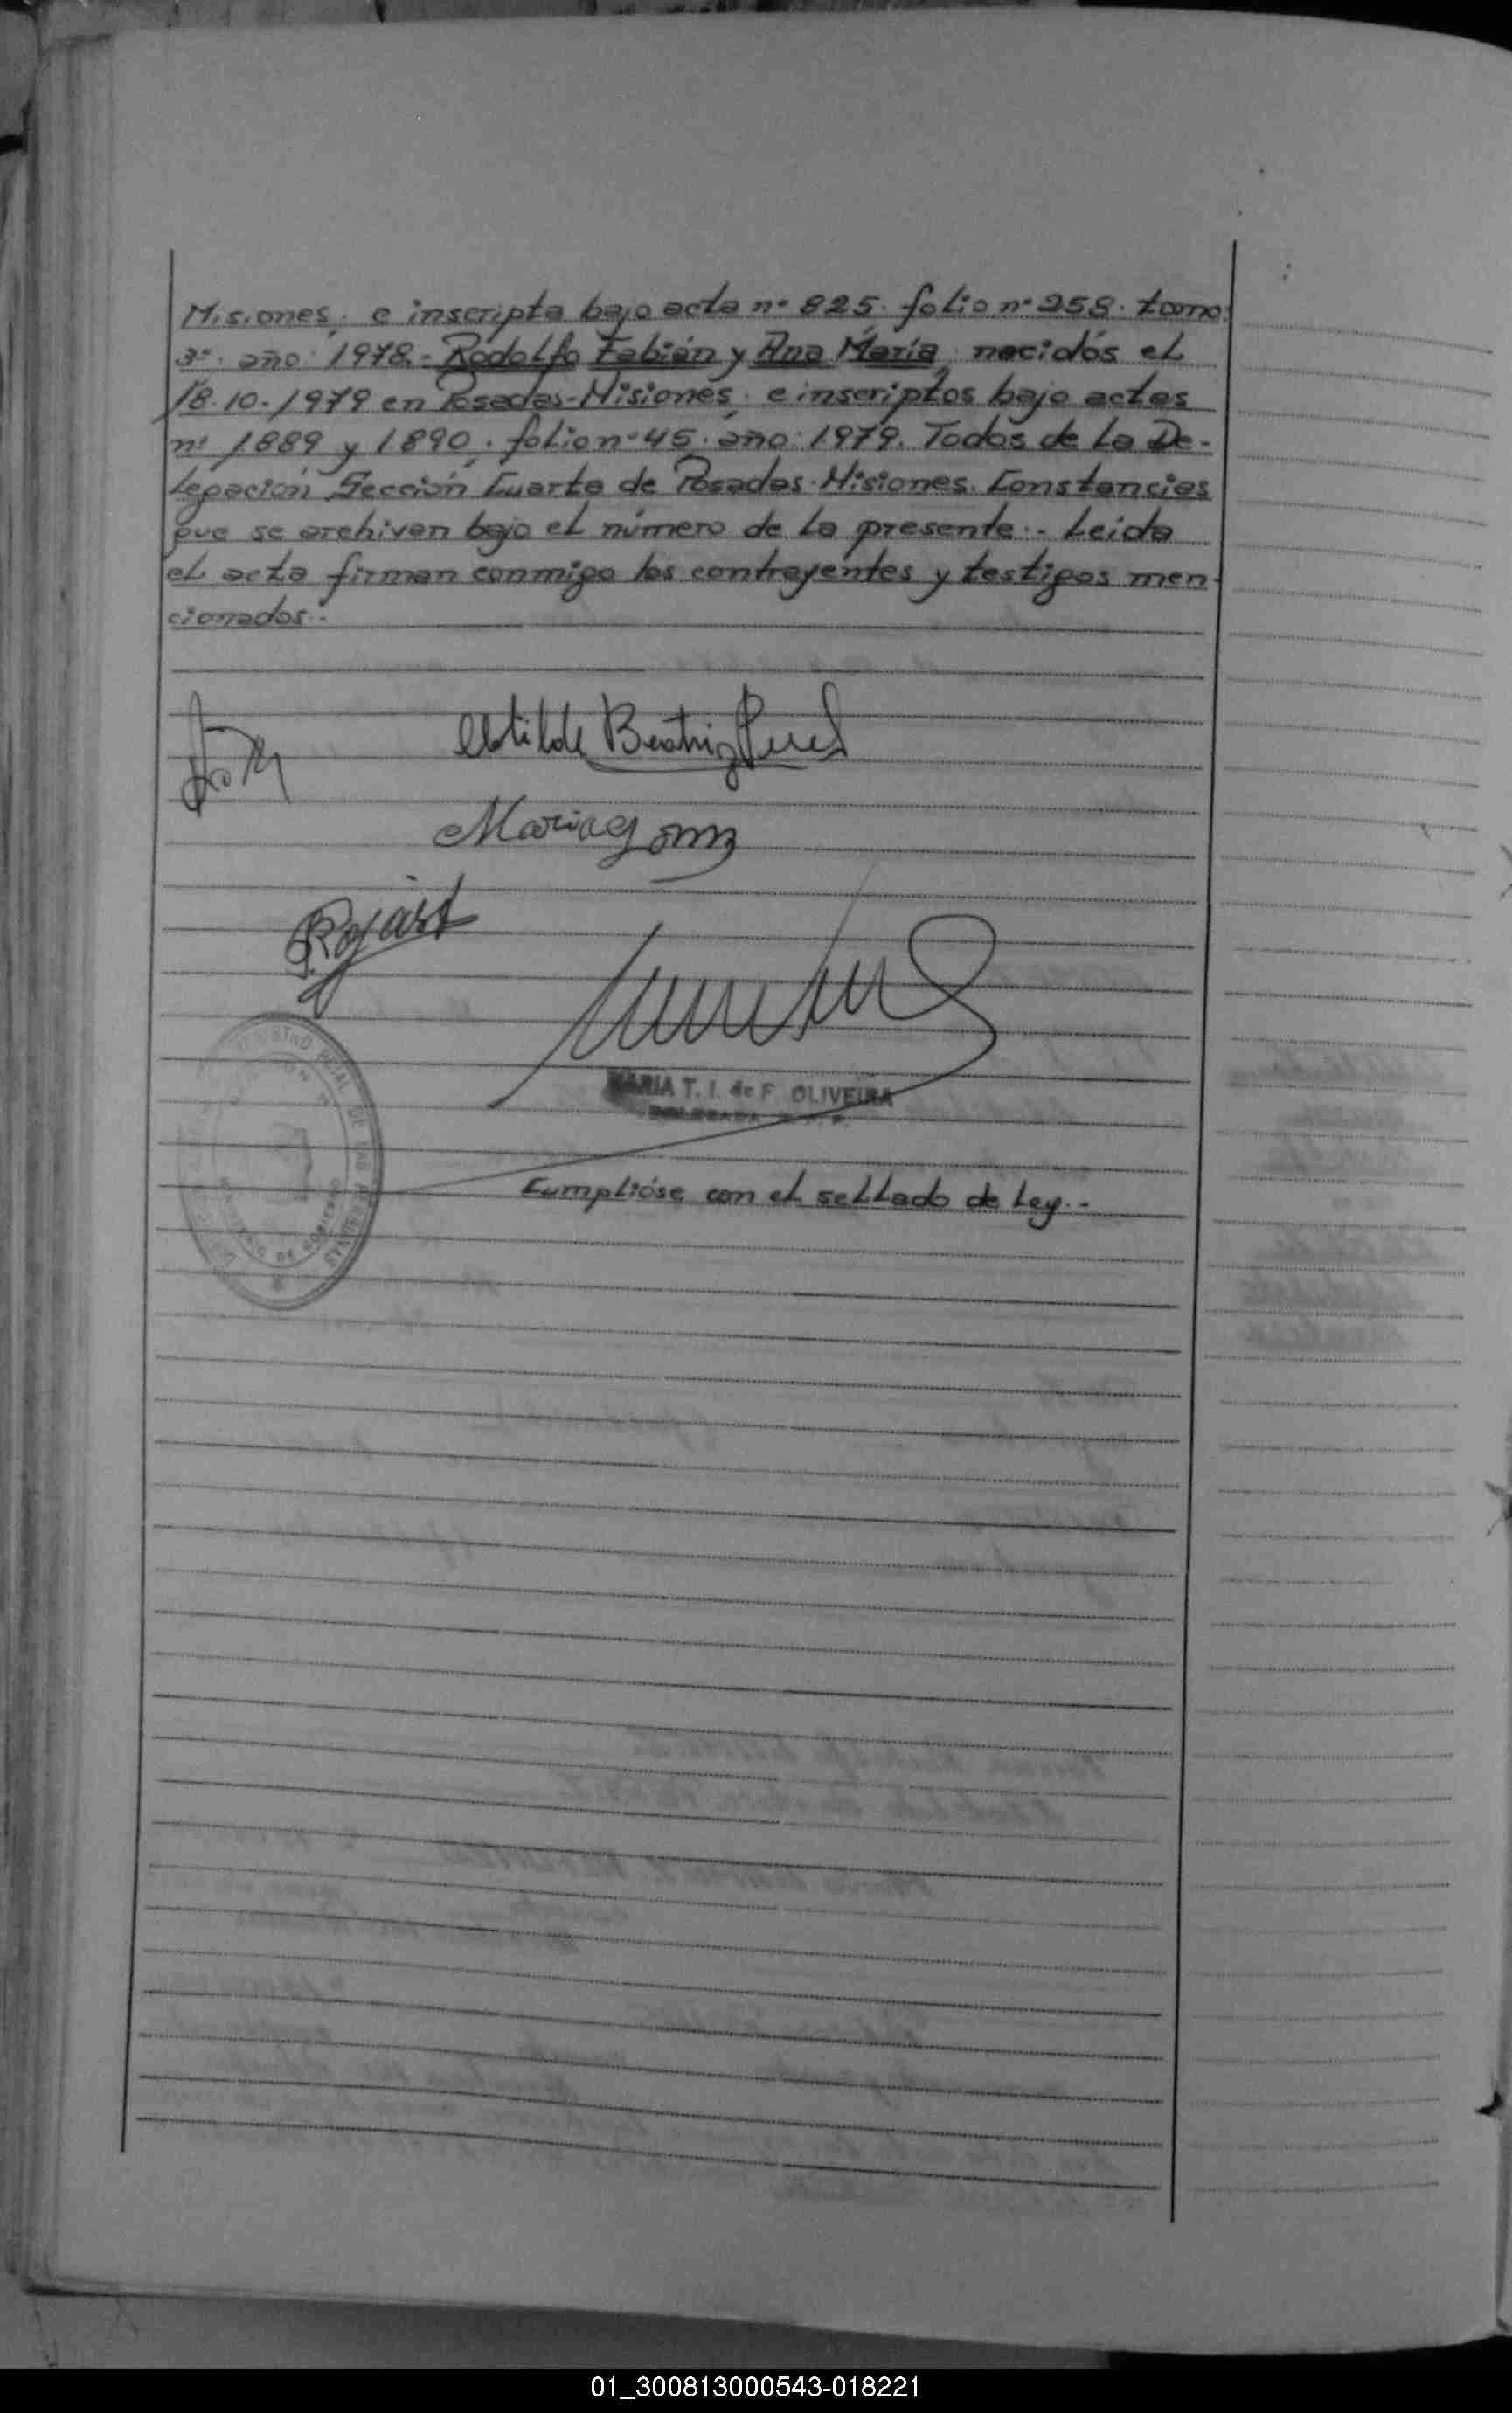 Misiones, e inscripta bajo acta nº 825. folio nº 258. tomo:
3º. año: 1978.- Rodolfo Fabián y Ana María, nacidos el
18.10.-1979 en Posadas-Misiones, e inscriptos bajo actas
nº 1889 y 1890. folio nº 45. año: 1979. Todos de la De-
legación Sección Cuarta de Posadas-Misiones. Constancias
que se archivan bajo el número de la presente.- Leída
el acta firman conmigo los contrayentes y testigos men-
cionados.-
Clotilde Beatriz
Maria
Rojas
MARIA T. I. de F. OLIVEIRA
DELEGADA
DE LAS PERSONAS
MINISTERIO DE GOBIERNO
Cumplióse con el sellado de Ley.-
01_300813000543-018221